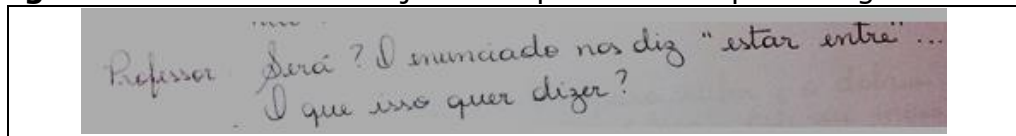 Professor Será? O enunciado nos diz "estar entre"...
O que isso quer dizer?